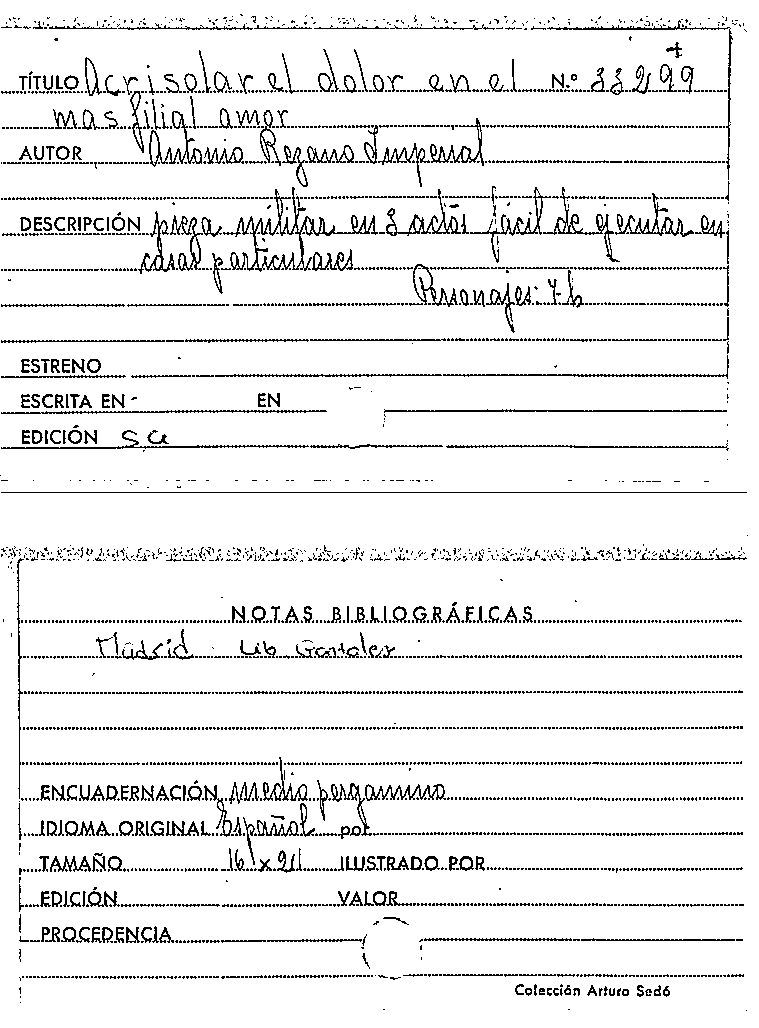 +
TÍTULO Acrisolar el dolor en el N.º 33299
mas filial amor
AUTOR Antonio Rezano Imperial
DESCRIPCIÓN pieza militar en 3 actos fácil de ejecutar en
casas particulares
Personajes: 7-6
ESTRENO
ESCRITA EN - EN
EDICIÓN sa
NOTAS BIBLIOGRÁFICAS
Madrid Lib Gonzalez
ENCUADERNACIÓN medio pergamino
IDIOMA ORIGINAL Español por
TAMAÑO 16 x 21 ILUSTRADO POR
EDICIÓN VALOR
PROCEDENCIA
Colección Arturo Sedó